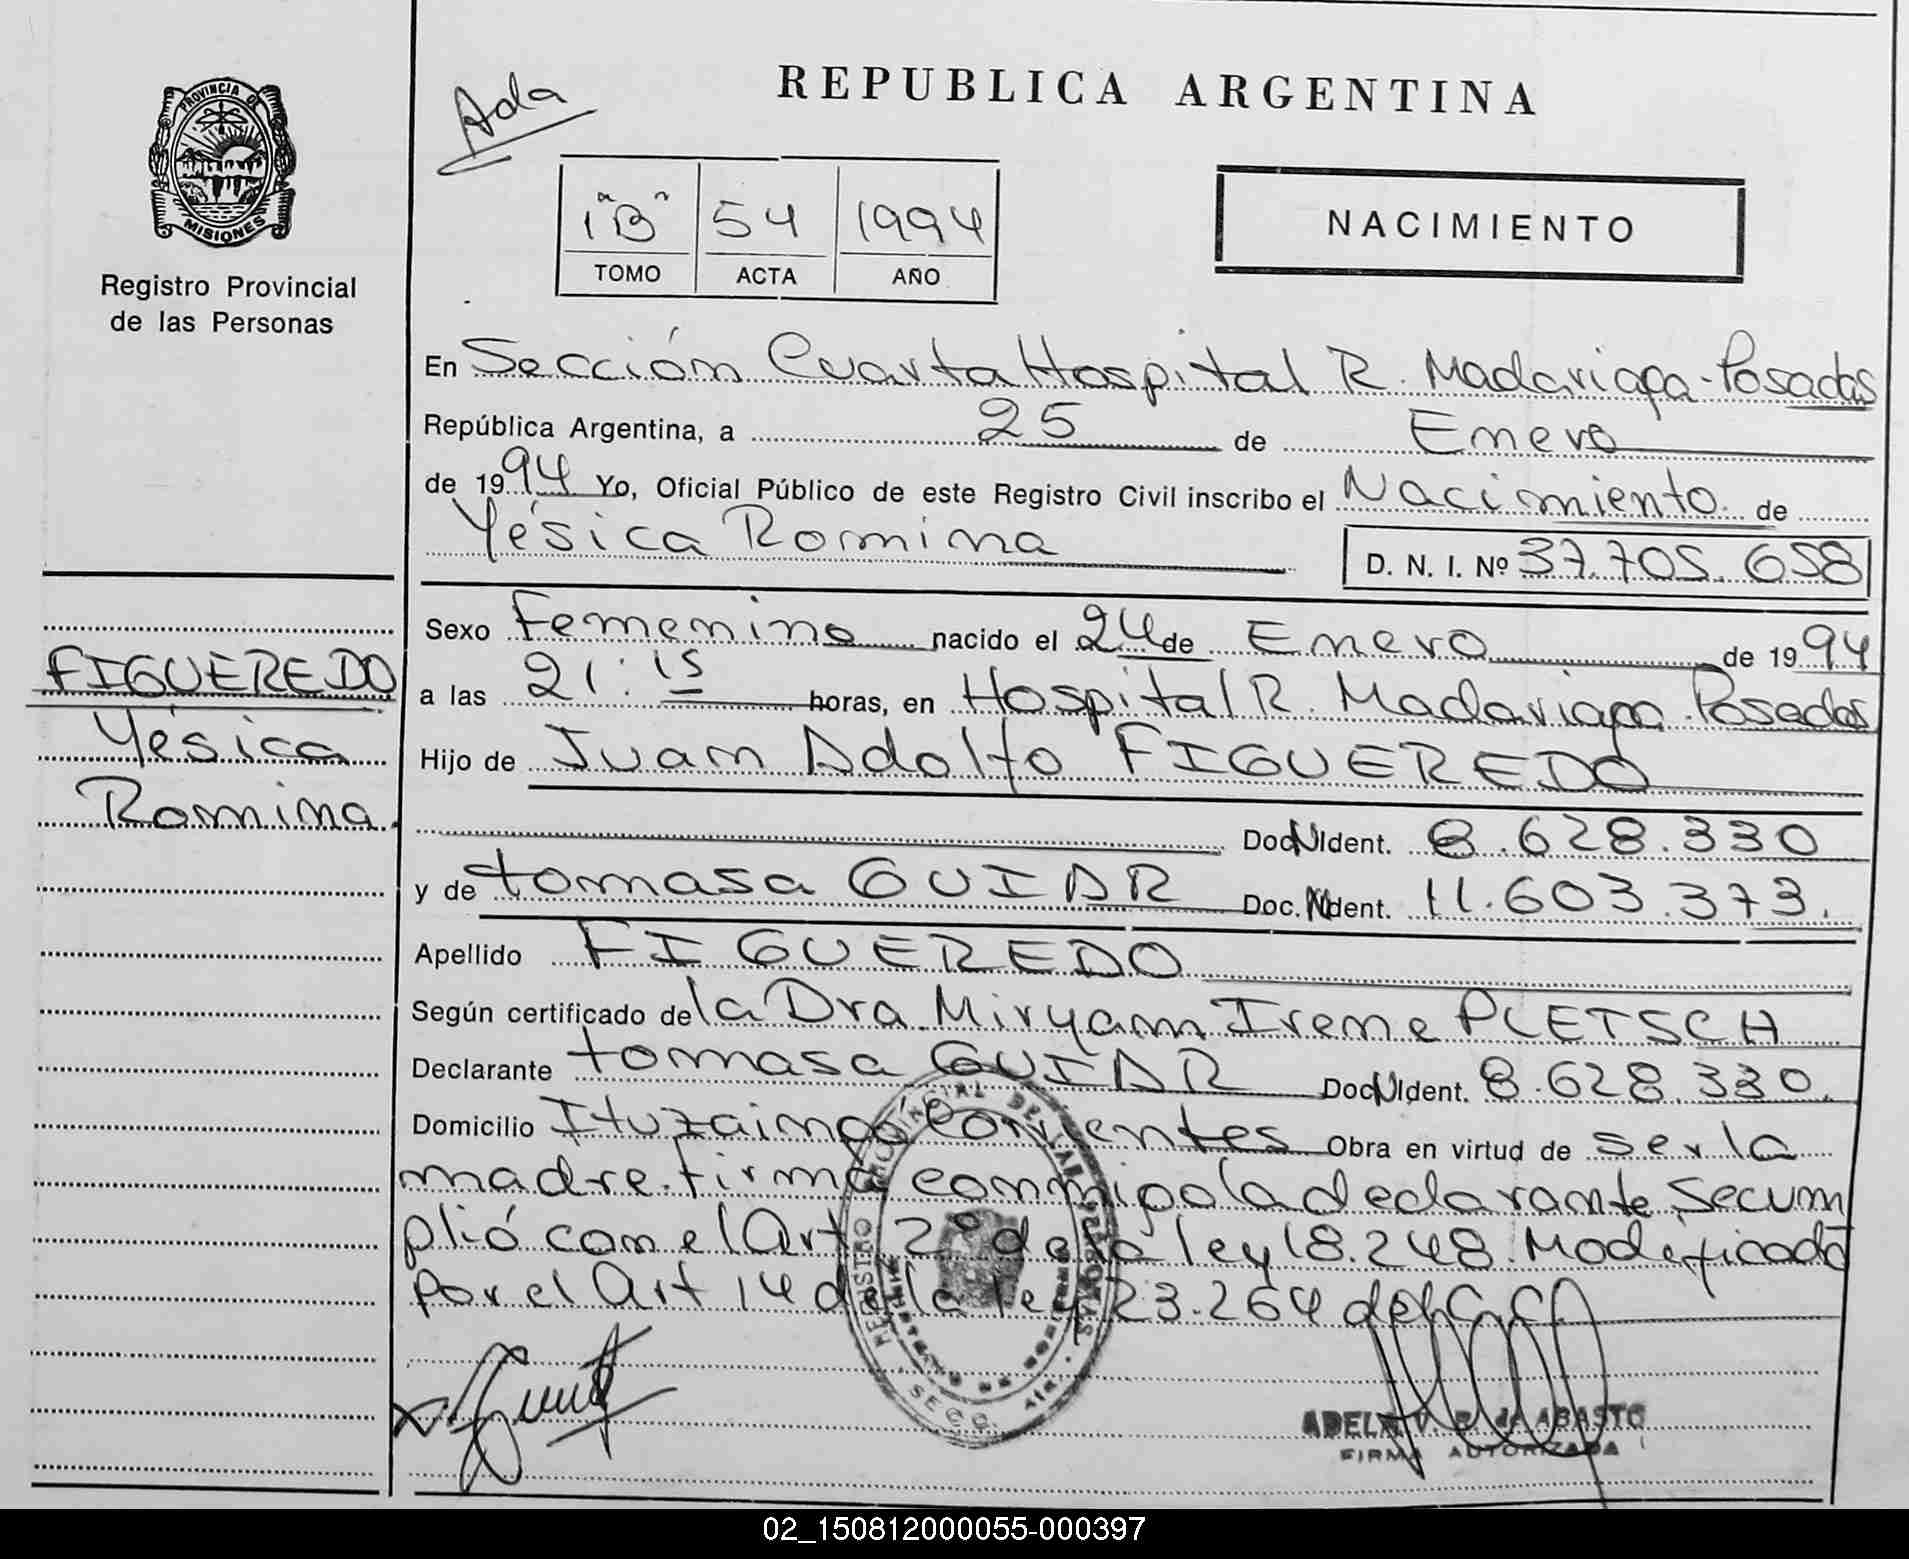 PROVINCIA DE
MISIONES
Registro Provincial
de las Personas
FIGUEREDO
Yésica
Romina.
Ada
REPUBLICA ARGENTINA
1"B" 54 1994
TOMO ACTA AÑO
NACIMIENTO
En Sección Cuarta Hospital R. Madariaga-Posadas
República Argentina, a 25 de Enero
de 1994 Yo, Oficial Público de este Registro Civil inscribo el Nacimiento de
Yésica Romina D. N. I. Nº 37.705.658
Sexo Femenino nacido el 24 de Enero de 1994
a las 21:15 horas, en Hospital R. Madariaga-Posadas
Hijo de Juan Adolfo FIGUEREDO
Doc N Ident. 8.628.330
y de tomasa GUIAR Doc. N Ident. 11.603.373.
Apellido FIGUEREDO
Según certificado de la Dra Miryam Irene PLETSCH
Declarante tomasa GUIAR Doc N Ident. 8.628.330.
Domicilio Ituzaingó Corrientes Obra en virtud de ser la
madre. firma conmigo la declarante. Se cum
plió con el Art 2º de la ley 18.248. Modificado
por el Art 14 de la ley 23.264 del C. C.
REGISTRO PROVINCIAL DE LAS PERSONAS
SECC. 4ta
ADELA V. de ABASTO
FIRMA AUTORIZADA
02_150812000055-000397